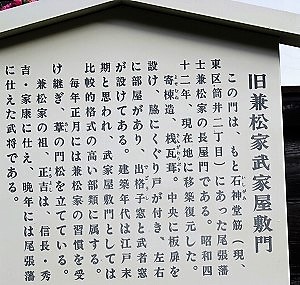 旧兼松家武家屋敷門
この門は、もと石神堂筋(現、
東区筒井二丁目)にあった尾張藩
士兼松家の長屋門である。昭和四
十二年、現在地に移築復元した。
寄棟造、桟瓦葺。中央に板扉を
設け、脇にくぐり戸が付き、左右
に部屋があり、出格子窓と武者窓
が設けてある。建築年代は江戸末
期と思われ、武家屋敷門としては
比較的格式の高い部類に属する。
毎年正月には兼松家の習慣を受
け継ぎ、葦の門松を立てている。
兼松家の祖、正吉は、信長・秀
吉・家康に仕え、晩年には尾張藩
に仕えた武将である。